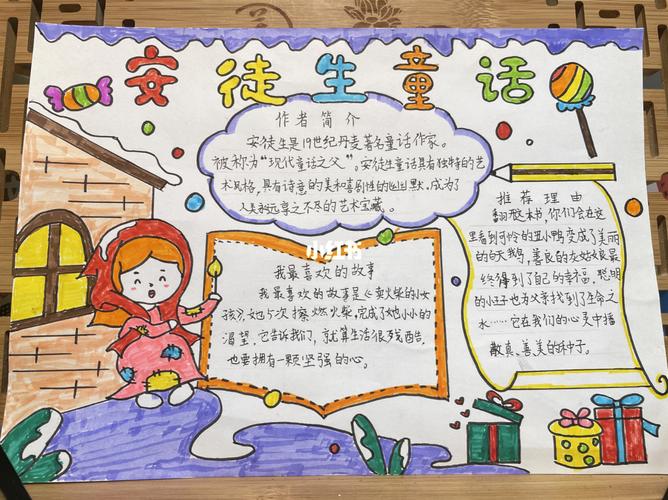 安徒生童话
作者简介
安徒生是19世纪丹麦著名童话作家。
被称为“现代童话之父”。安徒生童话具有独特的艺
术风格,具有诗意的美和喜剧性的幽默.成为了
人类永远享之不尽的艺术宝藏。
小红书
我最喜欢的故事
我最喜欢的故事是《卖火柴的小女
孩》,她5次擦燃火柴,完成了她小小的
渴望。它告诉我们,就算生活很残酷.
也要拥有一颗坚强的心。
推荐理由
翻开这本书,你们会在这
里看到可怜的丑小鸭变成了美丽
的白天鹅,善良的灰姑娘最
终得到了自己的幸福,聪明
的小王子也为父亲找到了生命之
水……它在我们的心灵中播
散真、善、美的种子。